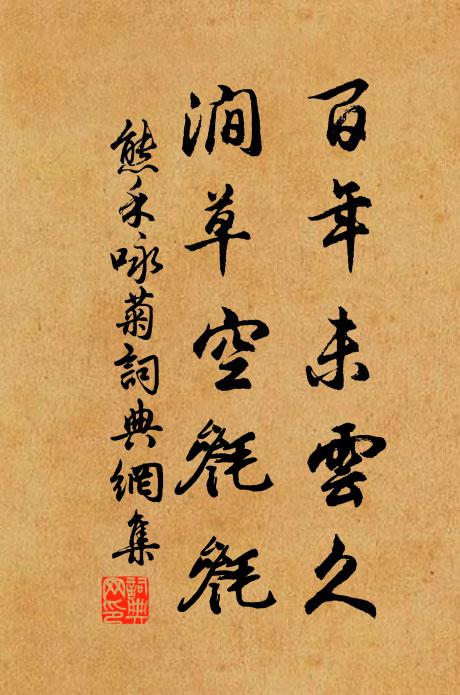 百年未雲久
澗草空毿毿
熊禾咏菊詞典網集
詞典网印